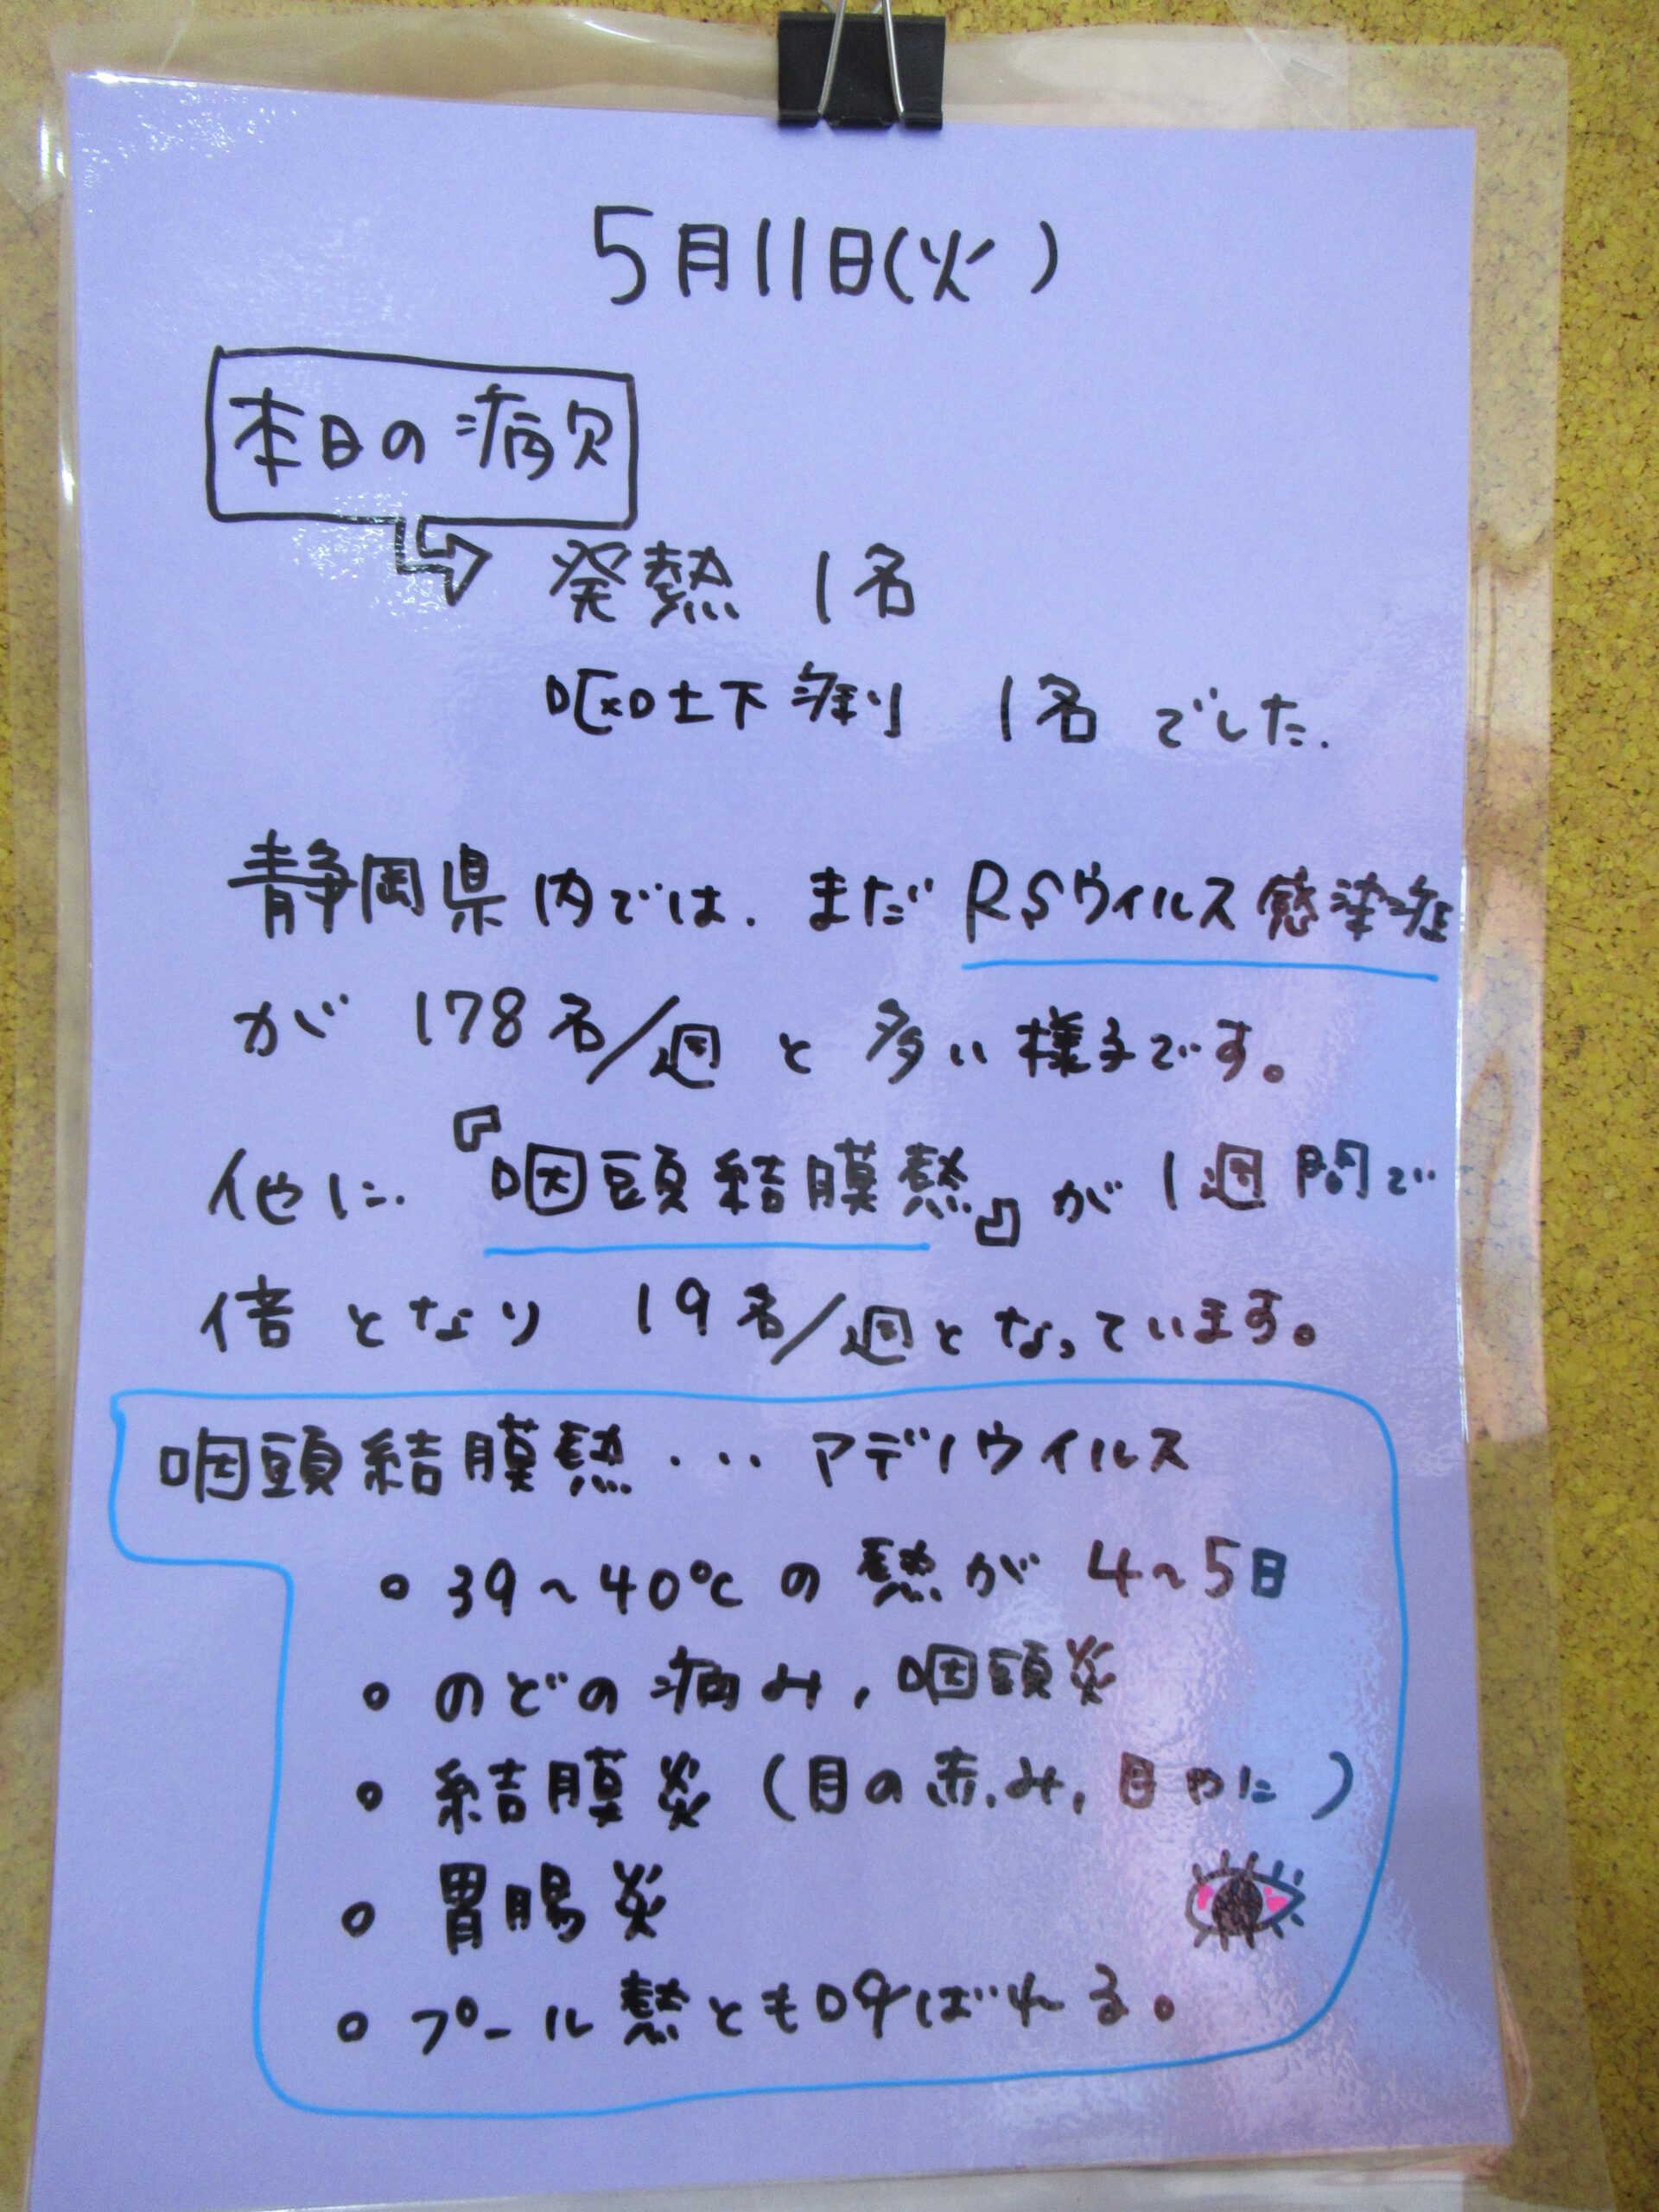 5月11日(火)
本日の病欠
発熱 1名
嘔吐下痢 1名でした.
静岡県内では、まだRSウイルス感染症
が 178名/週 と多い様子です。
他に、『咽頭結膜熱』が1週間で
倍となり 19名/週となっています。
咽頭結膜熱・・・アデノウイルス
• 39~40℃の熱が 4~5日
• のどの痛み，咽頭炎
• 結膜炎 (目の赤み，目やに)
• 胃腸炎
• プール熱とも呼ばれる。